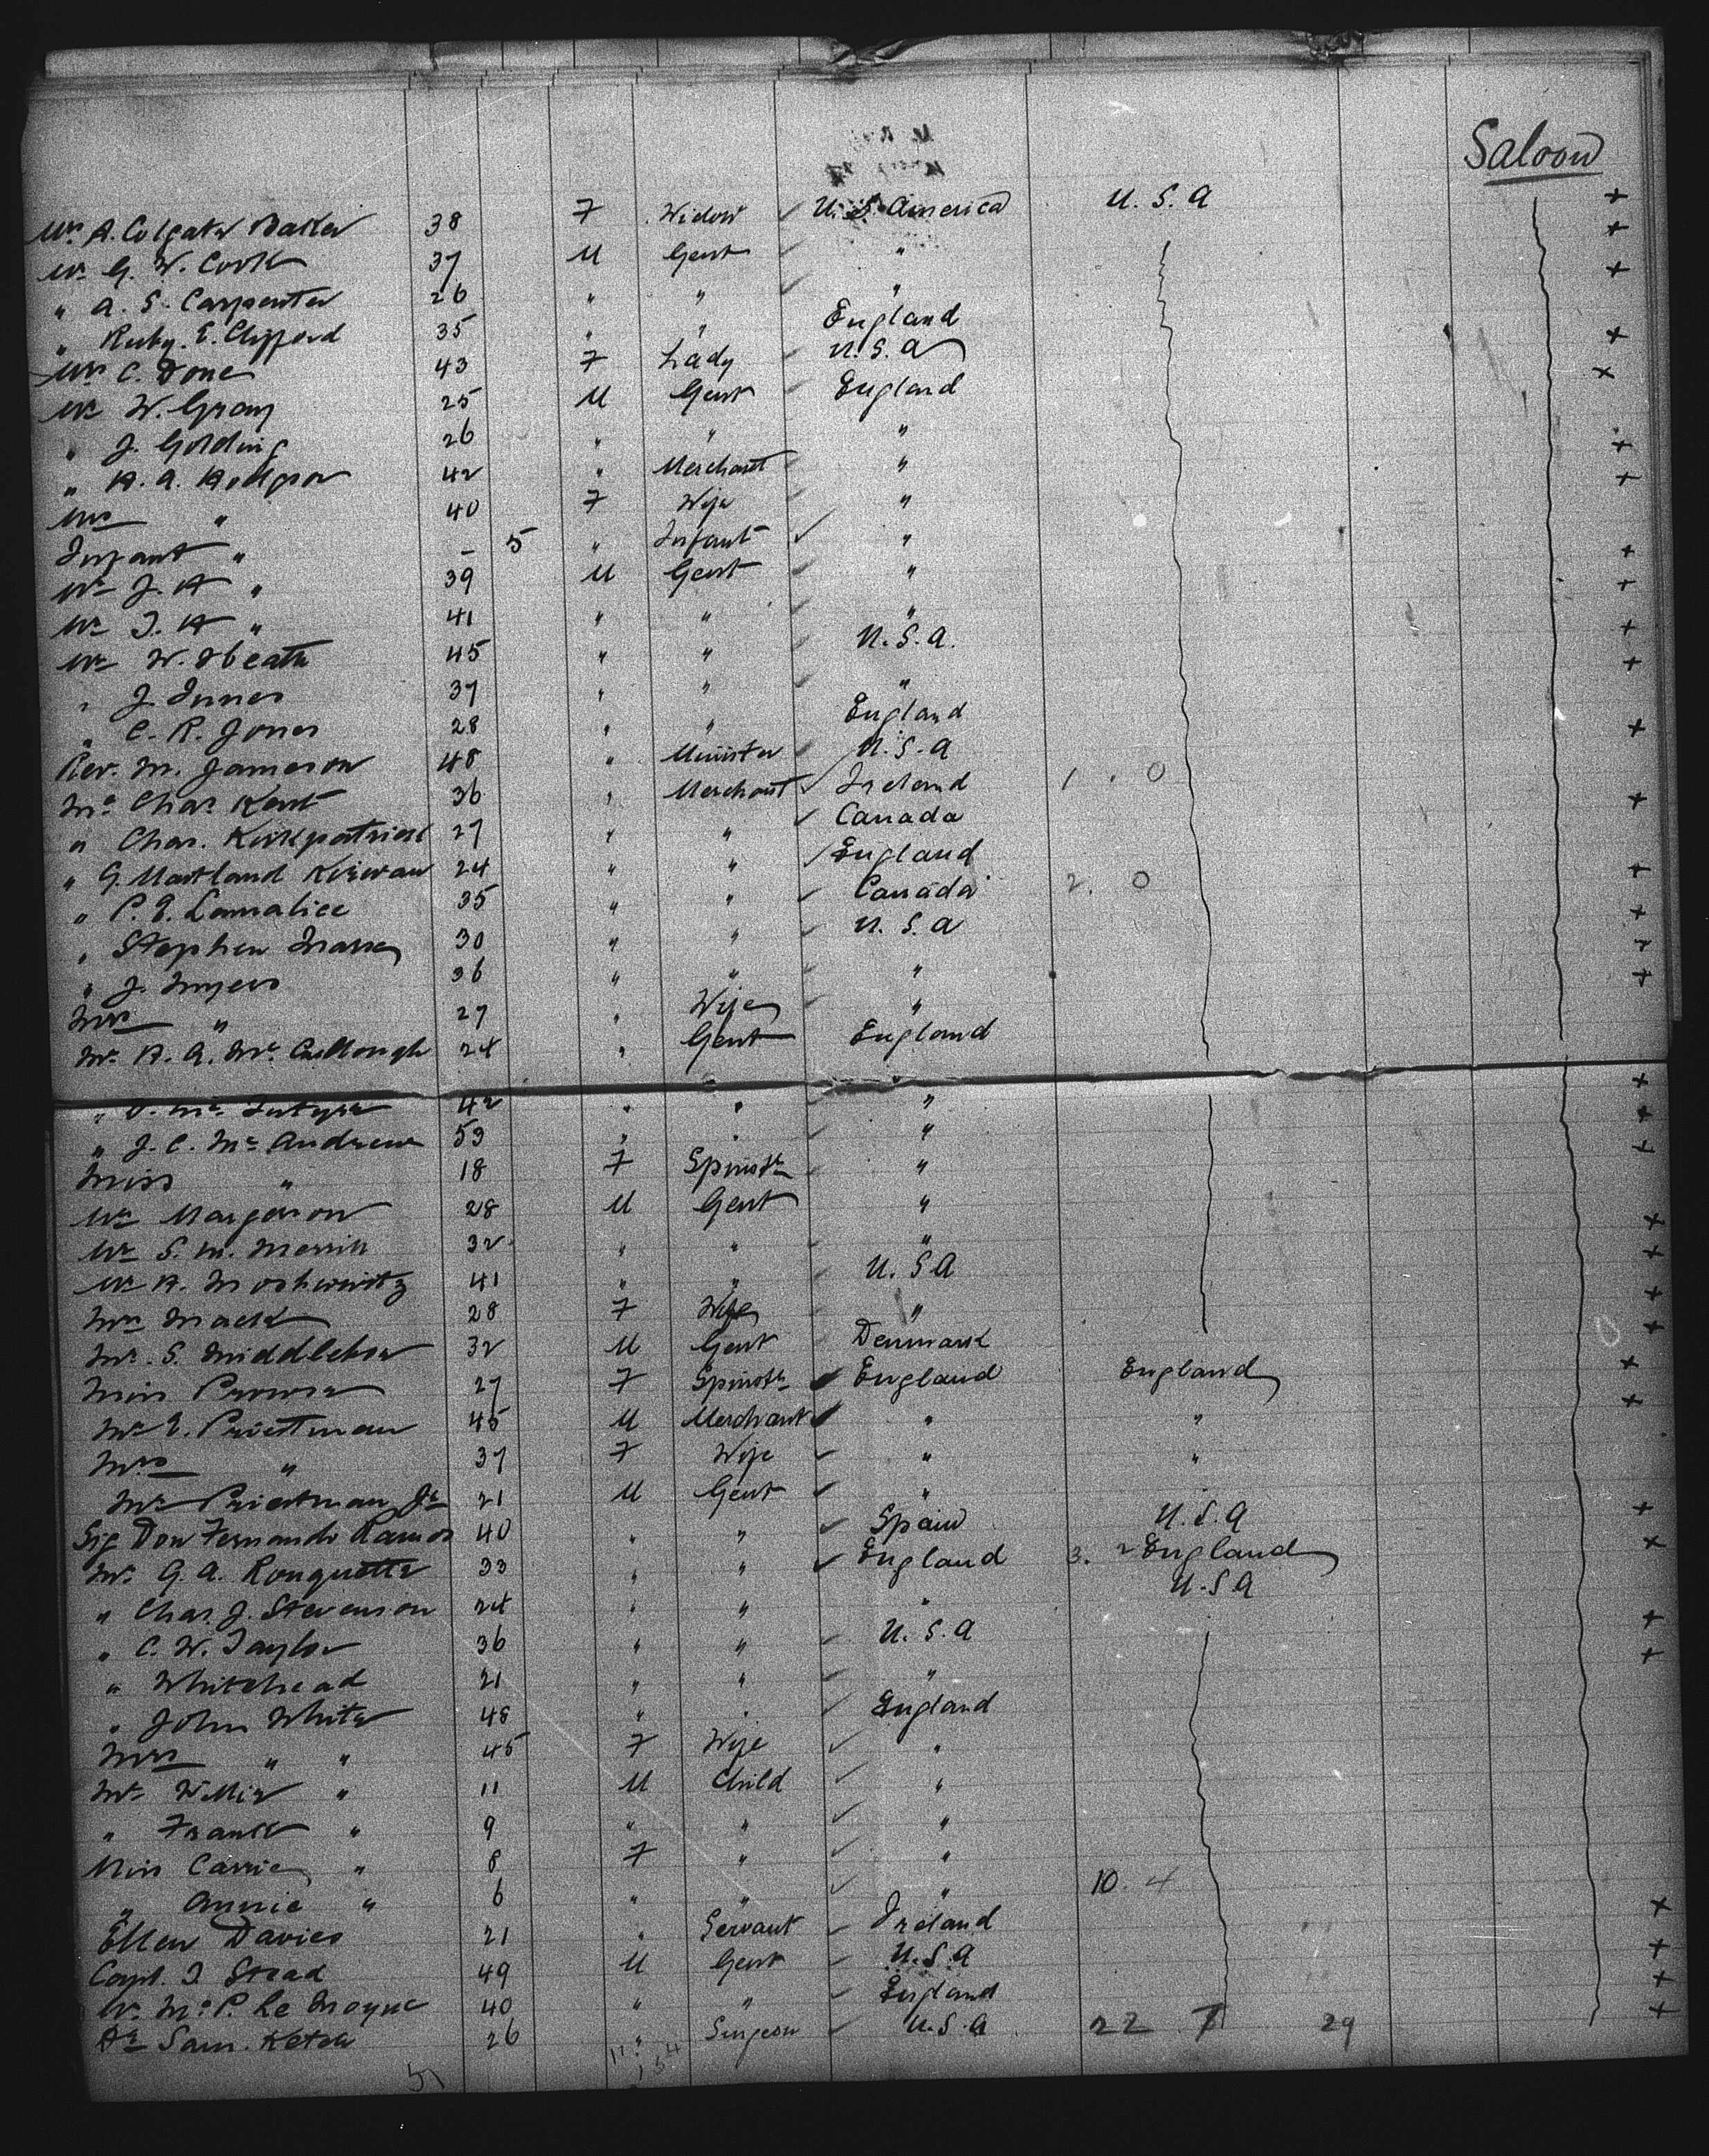 Saloon
Mrs A. Colgate Baker 38 F Widow ✓ U. S. America U. S. A +
Mr G. W. Cook 37 M Gent ✓ " +
" A. S. Carpenter 26 " " ✓ " +
" Ruby. E. Clifford 35 " " England
Mrs C. Done 43 F Lady ✓ U. S. A +
Mr W. Gray 25 M Gent ✓ England +
" J. Golding 26 " " "
" H. A. Hodgson 42 " Merchant ✓ " +
Mrs " 40 F Wife ✓ " +
Infant " – 5 " Infant ✓ "
Mr J. H " 39 M Gent ✓ " +
Mr T. H " 41 " " ✓ " +
Mr W. Heath 45 " " ✓ U. S. A. +
" J. Innes 37 " " ✓ " +
" C. R. Jones 28 " " England
Rev. M. Jameson 48 " Minister ✓ U. S. A +
Mr Chas Kent 36 " Merchant ✓ Ireland 1 . 0
" Chas. Kirkpatrick 27 " " ✓ Canada +
" G. Maitland Kirwan 24 " " ✓ England
" P. E. Lamalice 35 " " ✓ Canada 2. 0 +
" Stephen 30 " " ✓ U. S. A +
" J. Myers 36 " " ✓ " +
Mrs " 27 " Wife ✓ " +
Mr H. A. Mc Cullough 24 " Gent England
" Mc Intyre 42 " " ✓ " +
" J. C. Mc Andrew 53 " " ✓ " +
Miss " 18 F Spinstr " +
Mr Margerson 28 M Gent "
Mr S. M. Merrill 32 " " ✓ " +
Mr H. Moshowitz 41 " " ✓ U. S A +
Mrs Mack 28 F Wife ✓ " +
Mr. S. Middlebow 32 M Gent ✓ Denmark +
Miss 27 F Spinstr ✓ England England +
Mr E. Priestman 45 M Merchant ✓ " " +
Mrs " 37 F Wife ✓ " "
Mr Priestman Jr 21 M Gent ✓ "
Sig Don Fernando Ramos 40 " " ✓ Spain U. S. A +
Mr. G. A. Rouquette 33 " " ✓ England 3. 2 England +
" Chas. J. Stevenson 24 " " " U. S A
" C. W. Taylor 36 " " ✓ U. S. A +
" Whitehead 21 " " ✓ " +
" John White 48 " " ✓ England
Mrs " " 45 F Wife ✓ "
Mr Willie " 11 M Child ✓ "
" Frank " 9 " " ✓ "
Miss Carrie " 8 F " ✓ "
" Annie " 6 " " ✓ " 10. 4
Ellen Davies 21 " Servant ✓ Ireland +
Capt. T Stead 49 M Gent ✓ U. S. A +
Mr. Mc P. Le Moyne 40 " " ✓ England +
Dr Sam. Ketch 26 " Surgeon ✓ U. S. A 22 7 29 +
51